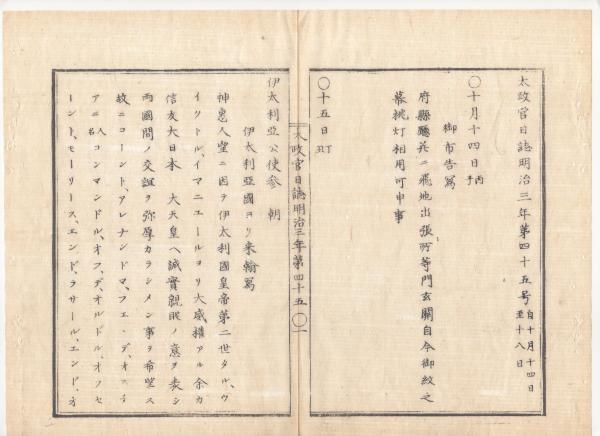 太政官日誌明治三年第四十五号 自十月十四日 至十八日
〇十月十四日 丙子
御布告写
府縣廳并ニ飛地出張所等門玄關自今御紋之
幕挑灯相用可申事
太政官日誌明治三年第四十五 〇一
〇十五日 丁丑
伊太利亞公使参 朝
伊太利亞國ヨリ来翰写
神恵人望ニ因テ伊太利國皇帝第二世タル、ウ
イクトル、イマニユールヨリ大威權アル余カ
信友大日本 大天皇ヘ誠實親睦ノ意ヲ表シ
両國間ノ交誼ヲ弥厚カラシメン事ヲ希望ス
故ニコーント、アレサンドマ、フェ・デ、オスチ
アニ 人名 コンマンドル、オフ、デ、オルドル、オフセ
ーント、モーリース、エンド、ラサール、エンド、オ